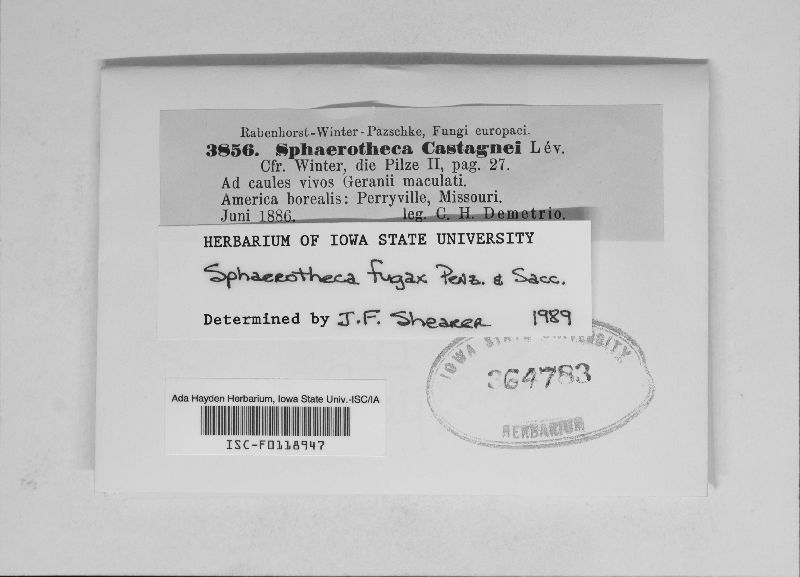 Rabenhorst-Winter-Pazschke, Fungi europaei.
3856. Sphaerotheca Castagnei Lév.
Cfr. Winter, die Pilze II, pag. 27.
Ad caules vivos Geranii maculati.
America borealis: Perryville, Missouri.
Juni 1886. leg. C. H. Demetrio.
HERBARIUM OF IOWA STATE UNIVERSITY
Sphaerotheca fugax Penz. & Sacc.
Determined by J.F. Shearer 1989
IOWA STATE UNIVERSITY
364783
HERBARIUM
Ada Hayden Herbarium, Iowa State Univ.-ISC/IA
ISC-F0118947